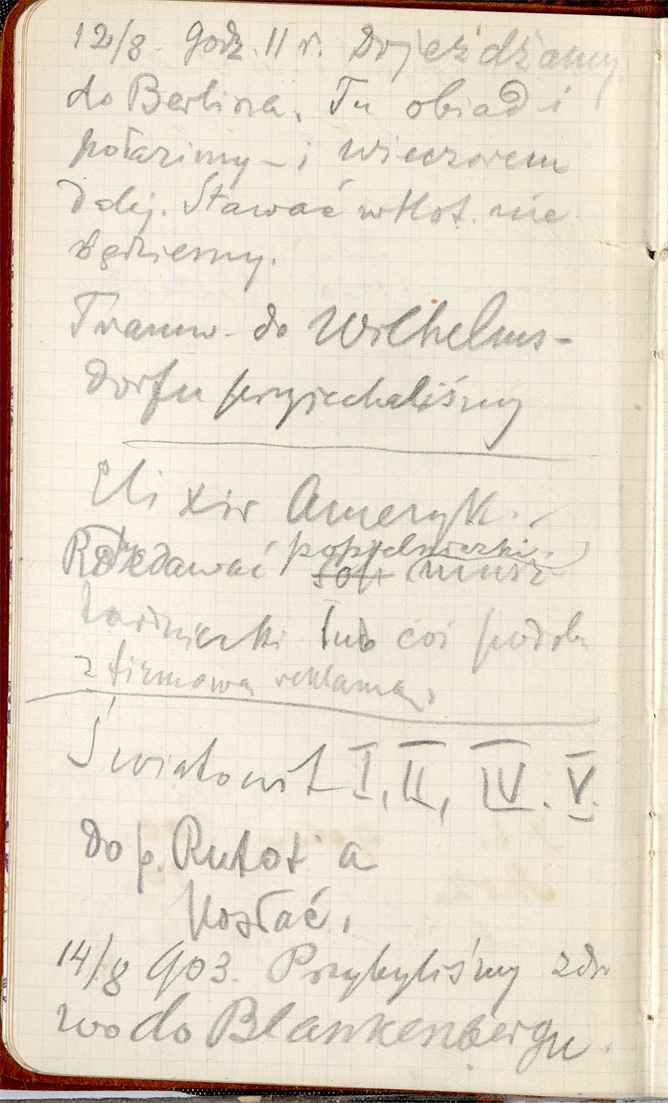 12/8. godz. 11 r. Dojeżdżamy
do Berlina. Tu obiad i
połazimy – i wieczorem
dalej. Stawać w Hot. nie
będziemy.
Tramw. do Wilhelms-
dorfu przyjechaliśmy
Elixir Ameryk.
Rozdawać popielniczki,
musztardniczki lub coś podob
z firmową reklamą.
Światowit I, II, IV. V.
do p. Rutot'a
posłać.
14/8 903. Przybyliśmy zdro
wo do Blankenbergu.